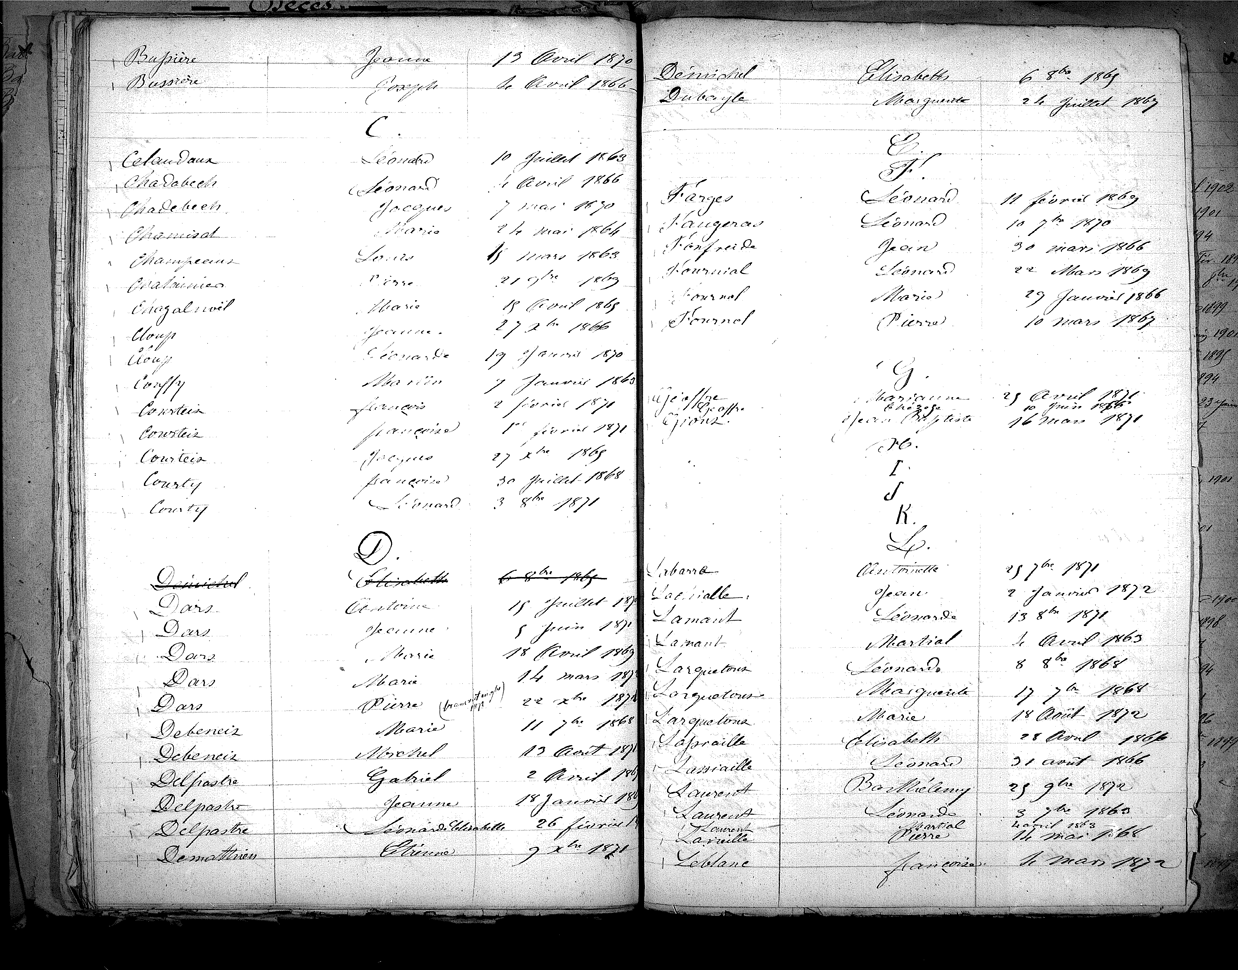 Décès.
Bussière Jeanne 13 Avril 1870
Bussière Joseph 4 Avril 1866
C.
Celaudaux Léonard 10 Juillet 1863
Chadebech Léonard 4 Avril 1866
Chadebech Jacques 7 mai 1870
Chamisat Marie 24 mai 1864
Champeaux Louis 15 mars 1863
Pierre 21 9bre 1869
Chazalnoël Marie 15 Avril 1865
Cloup Jeanne 27 Xbre 1866
Cloup Léonarde 19 Janvier 1870
Couffy Martin 7 Janvier 1863
Courteix françois 2 février 1871
Courteix françoise 1er février 1871
Courteix Jacques 27 Xbre 1865
Courty françoise 30 Juillet 1868
Courty Léonard 3 8bre 1871
D.
Démichel Elisabeth 6 8bre 1865
Dars Antoine 15 Juillet 187
Dars Jeanne 5 Juin 1871
Dars Marie 18 Avril 1869
Dars Marie 14 mars 187
Dars Pierre 22 Xbre 187
Debeneix Marie 11 7bre 1868
Debeneix Michel 13 Août 1871
Delpastre Gabriel 2 Avril 186
Delpastre Jeanne 18 Janvier 186
Delpastre Léonarde Elisabette 26 février 1
Demathieu Etienne 9 Xbre 1871
Démichel Elisabeth 6 8bre 1865
Dubayle Marguerite 24 Juillet 1869
E.
F.
Farges Léonard 11 février 1869
Faugeras Léonard 10 7bre 1870
Fonfreide Jean 30 mars 1866
Fournial Léonard 22 Mars 1869
Fournol Marie 29 Janvier 1866
Fournol Pierre 10 mars 1867
G.
Géoffre Marianne 25 Avril 1871
Géoffre Thérèse 10 Juin 1866
Gioux Jean Baptiste 16 mars 1871
H.
I
J
K.
L.
Labarre Antoinette 25 7bre 1871
Lachialle Jean 2 Janvier 1872
Lamant Léonarde 13 8bre 1871
Lamant Martial 4 Avril 1863
Larquetoux Léonarde 8 8bre 1868
Larquetoux Marguerite 17 7bre 1868
Larquetoux Marie 18 Août 1872
Lapraille Elisabeth 28 Avril 1864
Lassiaille Léonard 31 août 1866
Laurent Barthélemy 25 9bre 1872
Laurent Léonarde 3 7bre 1863
Laurent Martial 4 avril 1863
Laveille Pierre 14 mai 1868
Leblanc françoise 4 mars 1872